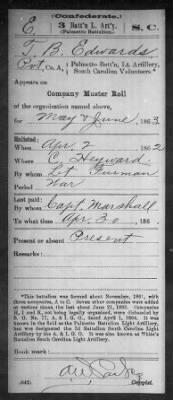 (Confederate.)
E 3 Batt'n L. Art'y. S. C.
(Palmetto Battalion.)
T. B. Edwards
Pvt, Co. A, Palmetto Batt'n, Lt. Artillery,
South Carolina Volunteers.*
Appears on
Company Muster Roll
of the organization named above,
for May & June, 1863
Enlisted:
When Apr. 2, 1862
Where C. Heyward
By whom Lt Furman
Period War
Last paid:
By whom Capt. Marshall
To what time Apr. 30, 186
Present or absent Present
Remarks:
*This battalion was formed about November, 1861, with
three companies, A to C. Seven other companies were added
at various times, the last about June 21, 1862. Companies
H, I and K, not being legally organized, were disbanded by
S. O. No. 77, A. & I. G. O., dated April 2, 1864. It was known
in the field as the Palmetto Battalion Light Artillery, but
was designated the 3d Battalion South Carolina Light
Artillery by the A. & I. G. O. It was also known as White's
Battalion South Carolina Light Artillery.
Book mark:
(642)
Copyist.